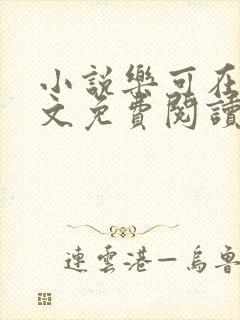 小說樂可在
文免費閱讀
連雲港—烏魯